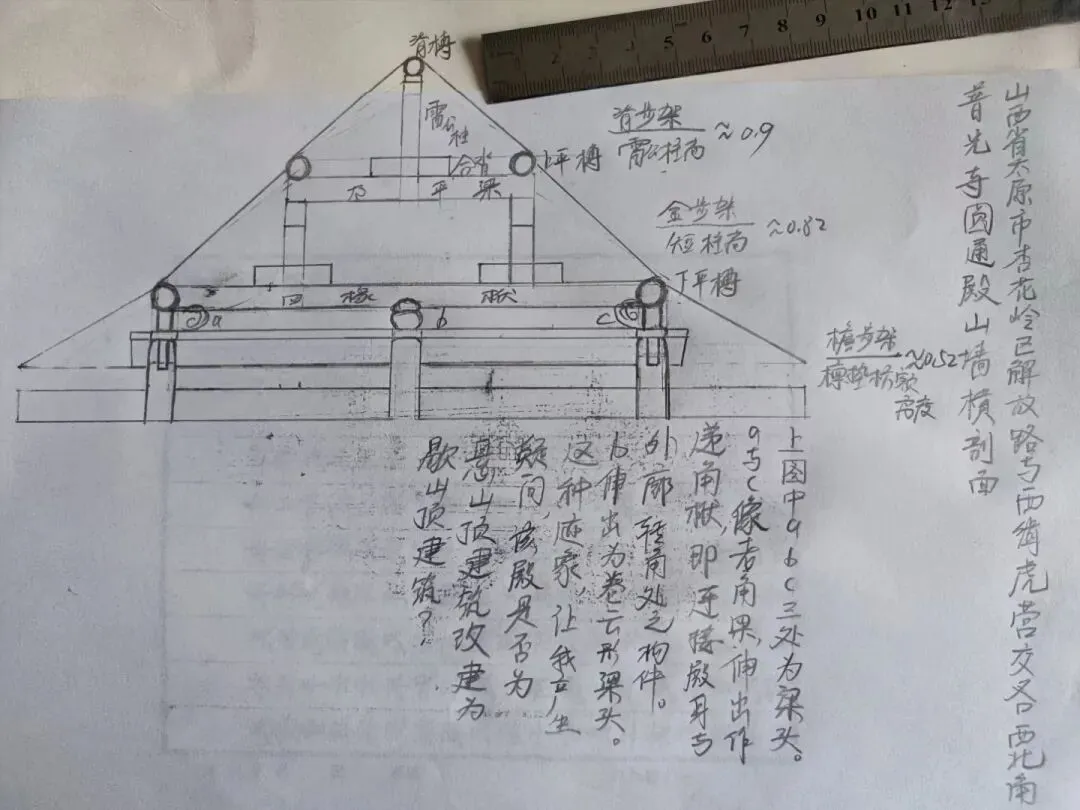 山西省太原市杏花岭区解放路与西缉虎营交各西北角
普光寺圆通殿山墙横剖面
脊槫
雷公柱
合㭼
上平槫
脊步架
雷公柱高
≈0.9
平梁
金步架
短柱高
≈0.82
四椽栿
下平槫
a
b
c
檐步架
≈0.52
高度
上图中a b c三处为梁头。
a与c像老角梁,伸出作
递角栿,即连接殿身与
外廊转角处之构件。
b伸出为卷云形梁头。
这种迹象,让我产生
疑问,该殿是否为
悬山顶建筑改建为
歇山顶建筑?
0 1 2 3 4 5 6 7 8 9 10 11 12 13